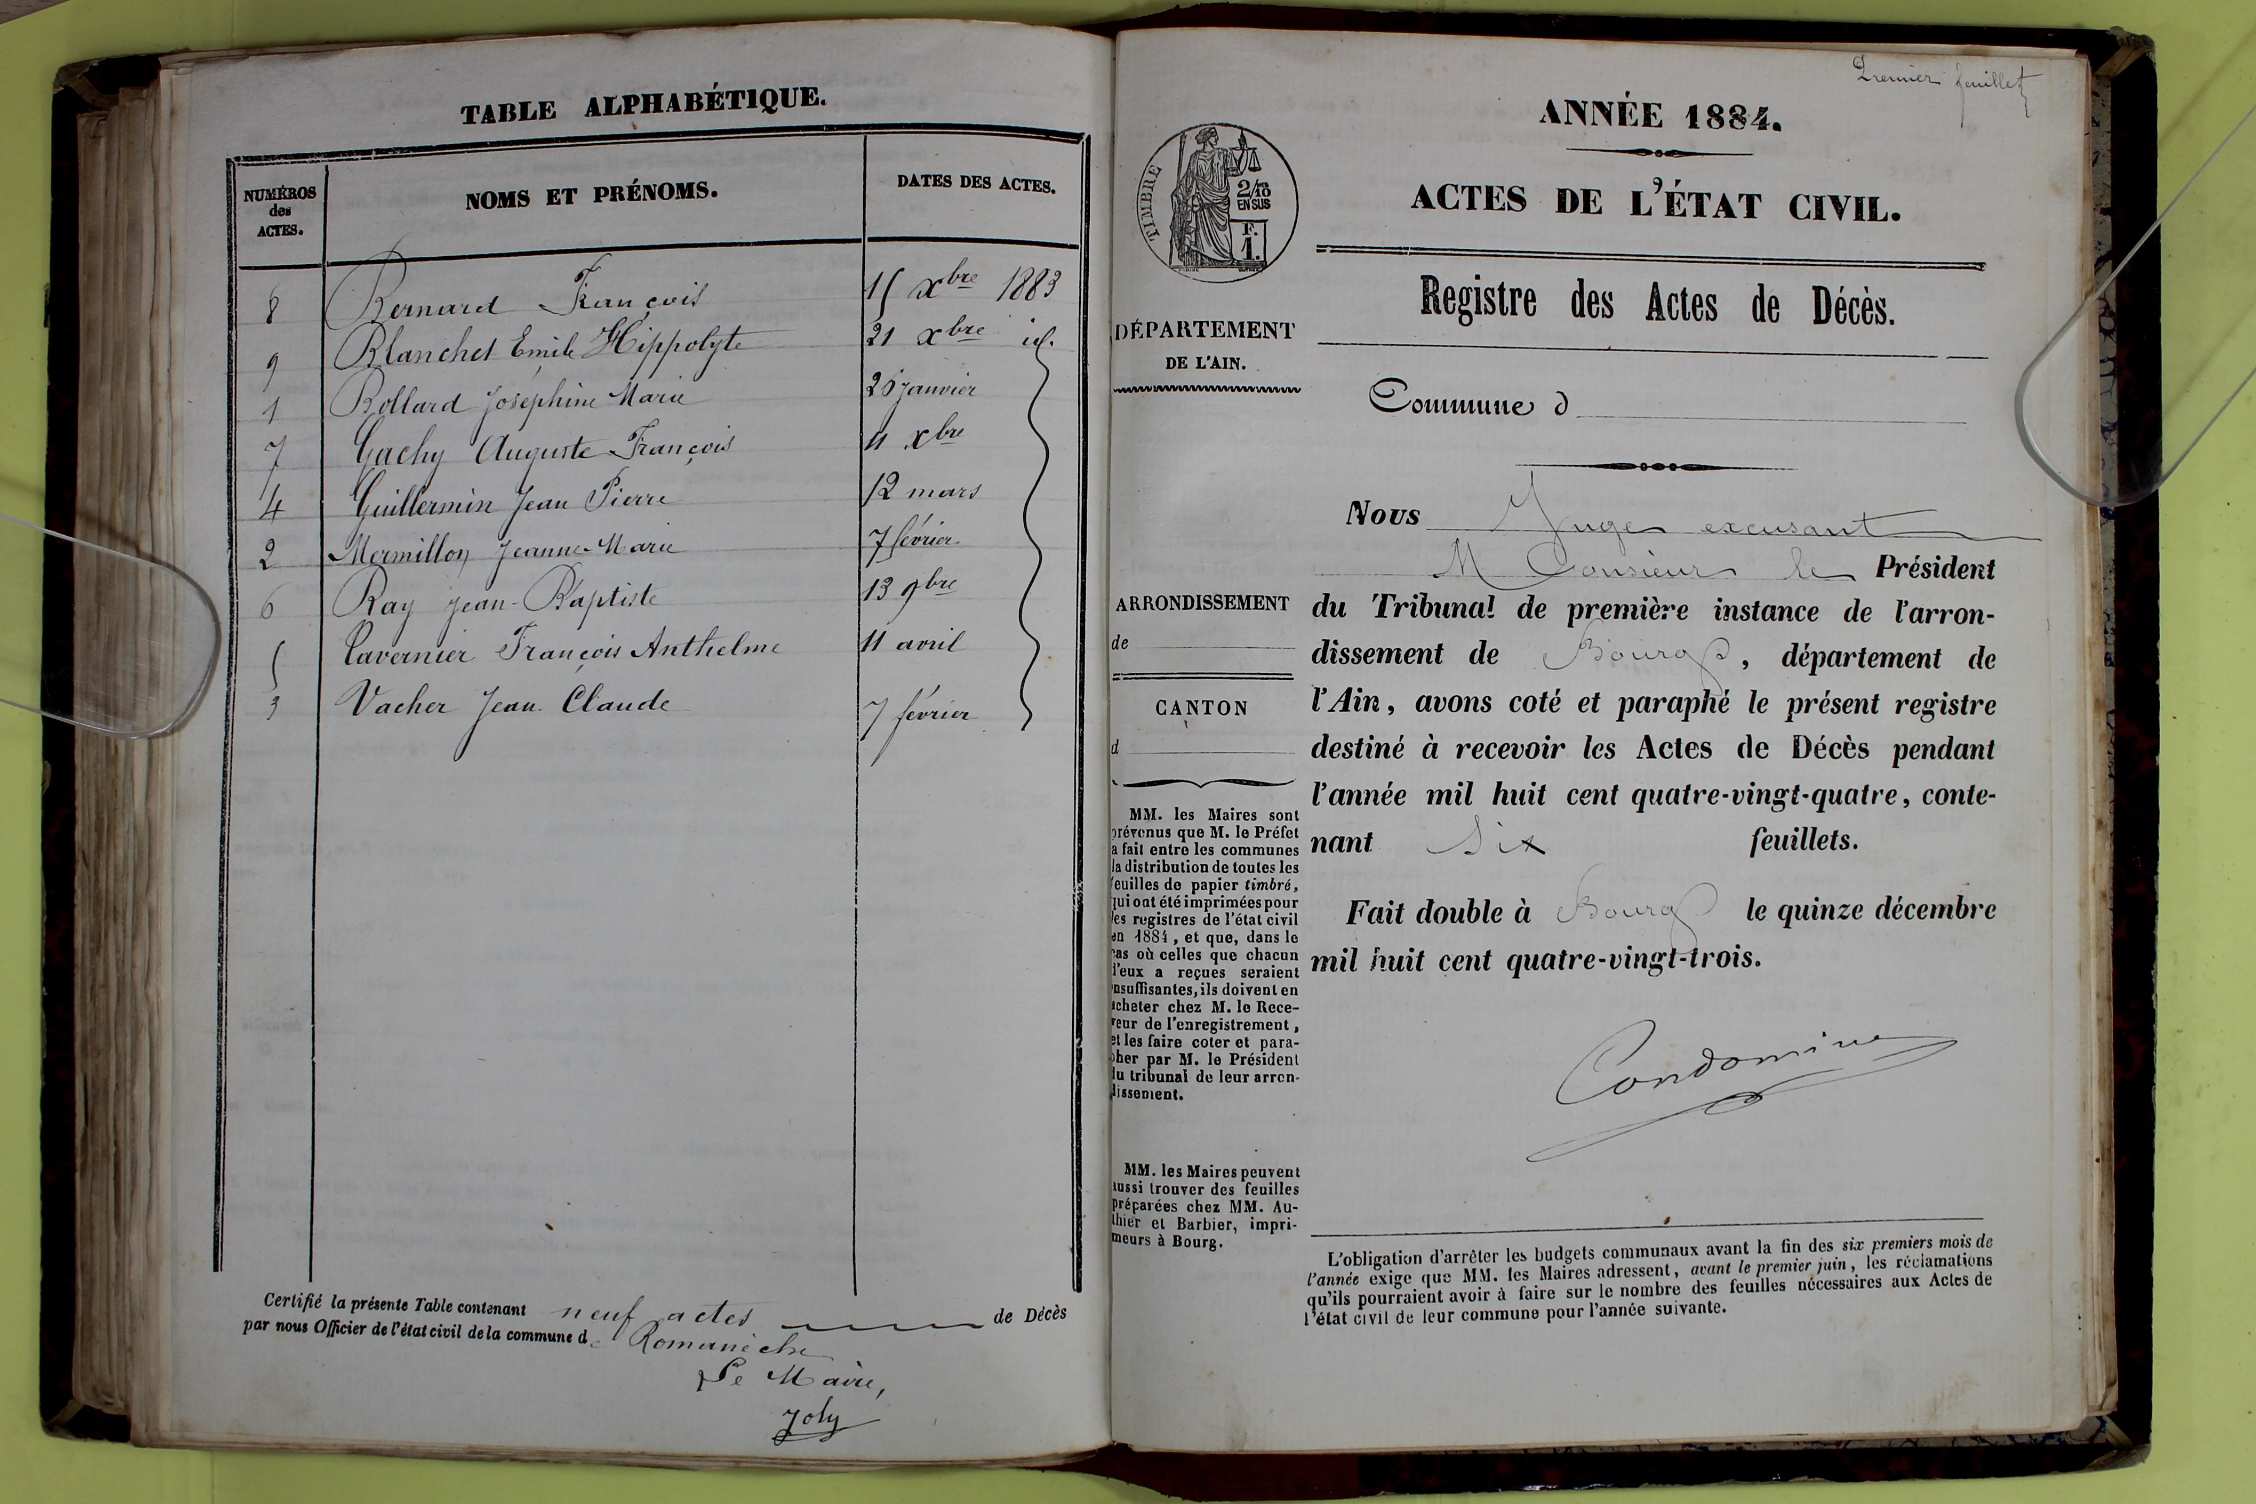 TABLE ALPHABÉTIQUE.
NUMÉROS
des
ACTES.
NOMS ET PRÉNOMS.
DATES DES ACTES.
8 Bernard François 15 Xbre 1883
9 Blanchet Emile Hippolyte 21 Xbre id.
1 Bollard Joséphine Marie 26 janvier
7 Gachy Auguste François 11 Xbre
4 Guillermin Jean Pierre 12 mars
2 Mermillon Jeanne-Marie 7 février
6 Ray Jean-Baptiste 13 9bre
5 Tavernier François Anthelme 11 avril
3 Vacher Jean Claude 7 février
Certifié la présente Table contenant neuf actes de Décès
par nous Officier de l'état civil de la commune de Romanèche
Le Maire,
Joly
Premier feuillet
ANNÉE 1884.
ACTES DE L'ÉTAT CIVIL.
TIMBRE
2/10
EN SUS
F.
1.
DÉPARTEMENT
DE L'AIN.
ARRONDISSEMENT
de
CANTON
d
MM. les Maires sont
prévenus que M. le Préfet
a fait entre les communes
la distribution de toutes les
feuilles de papier timbré,
qui ont été imprimées pour
les registres de l'état civil
en 1884, et que, dans le
cas où celles que chacun
d'eux a reçues seraient
insuffisantes, ils doivent en
acheter chez M. le Rece-
veur de l'enregistrement,
et les faire coter et para-
pher par M. le Président
du tribunal de leur arron-
dissement.
MM. les Maires peuvent
aussi trouver des feuilles
préparées chez MM. Au-
thier et Barbier, impri-
meurs à Bourg.
Registre des Actes de Décès.
Commune d
Nous Juge excusant
Monsieur le Président
du Tribunal de première instance de l'arron-
dissement de Bourg, département de
l'Ain, avons coté et paraphé le présent registre
destiné à recevoir les Actes de Décès pendant
l'année mil huit cent quatre-vingt-quatre, conte-
nant six feuillets.
Fait double à Bourg le quinze décembre
mil huit cent quatre-vingt-trois.
Condomine
L'obligation d'arrêter les budgets communaux avant la fin des six premiers mois de
l'année exige que MM. les Maires adressent, avant le premier juin, les réclamations
qu'ils pourraient avoir à faire sur le nombre des feuilles nécessaires aux Actes de
l'état civil de leur commune pour l'année suivante.